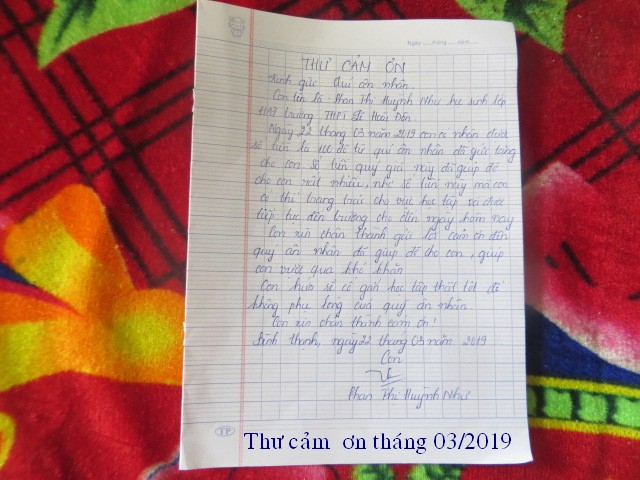 Ngày ..... tháng ..... năm .....
THƯ CẢM ƠN
Kính gửi: Quí ân nhân.
Con tên là: Phan Thị Huỳnh Như học sinh lớp
trường THPT
Ngày 22 tháng 03 năm 2019 con có nhận được
số tiền là 100 đô từ quí ân nhân đã gửi tặng
cho con số tiền quý giá này đã giúp đỡ
cho con rất nhiều, nhờ số tiền này mà con
có thể trang trải cho việc học tập và được
tiếp tục đến trường cho đến ngày hôm nay
Con xin chân thành gửi lời cảm ơn đến
quý ân nhân đã giúp đỡ cho con, giúp
con vượt qua khó khăn
Con hứa sẽ cố gắn học tập thật tốt để
không phụ lòng của quý ân nhân
Con xin chân thành cảm ơn!
thạnh, ngày 22 tháng 03 năm 2019
Con
Phan Thị Huỳnh Như
Thư cảm ơn tháng 03/2019